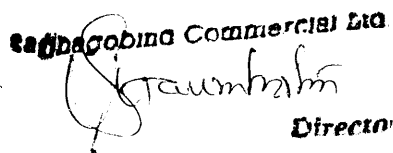 Radhagobind Commercial Ltd
Director